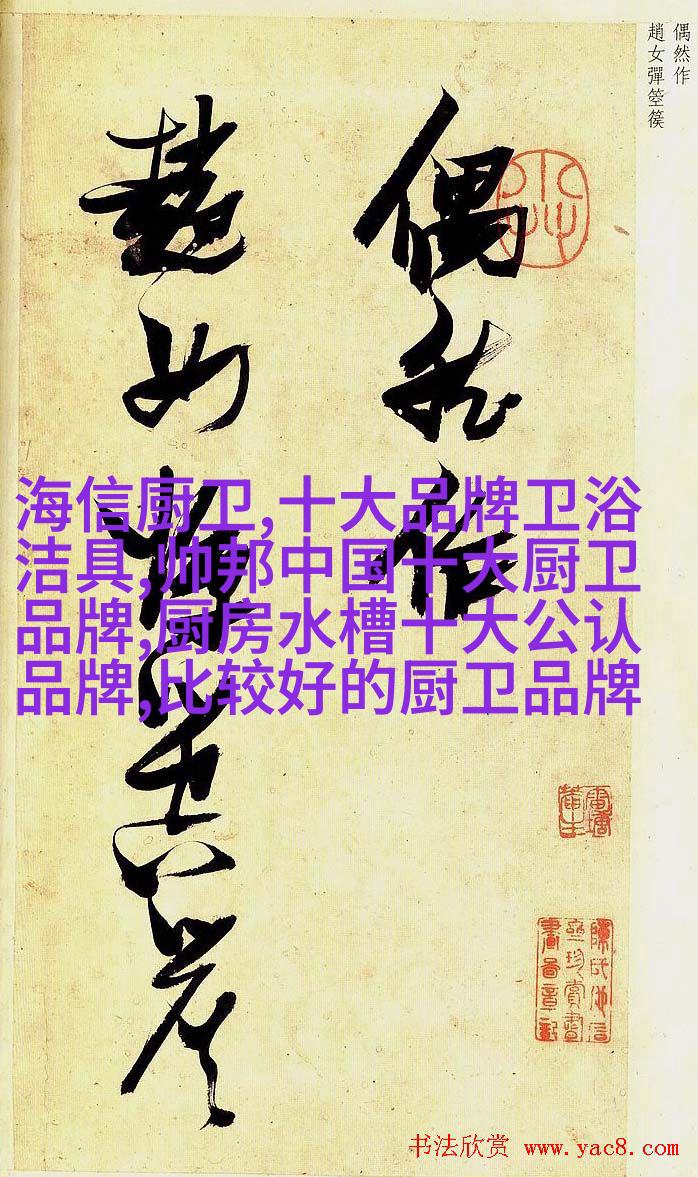 偶然作
趙女彈箜篌
偶然作
趙女彈箜篌
海信厨卫,十大品牌卫浴
洁具,帅邦中国十大厨卫
品牌,厨房水槽十大公认
品牌,比较好的厨卫品牌
书法欣赏 www.yac8.com